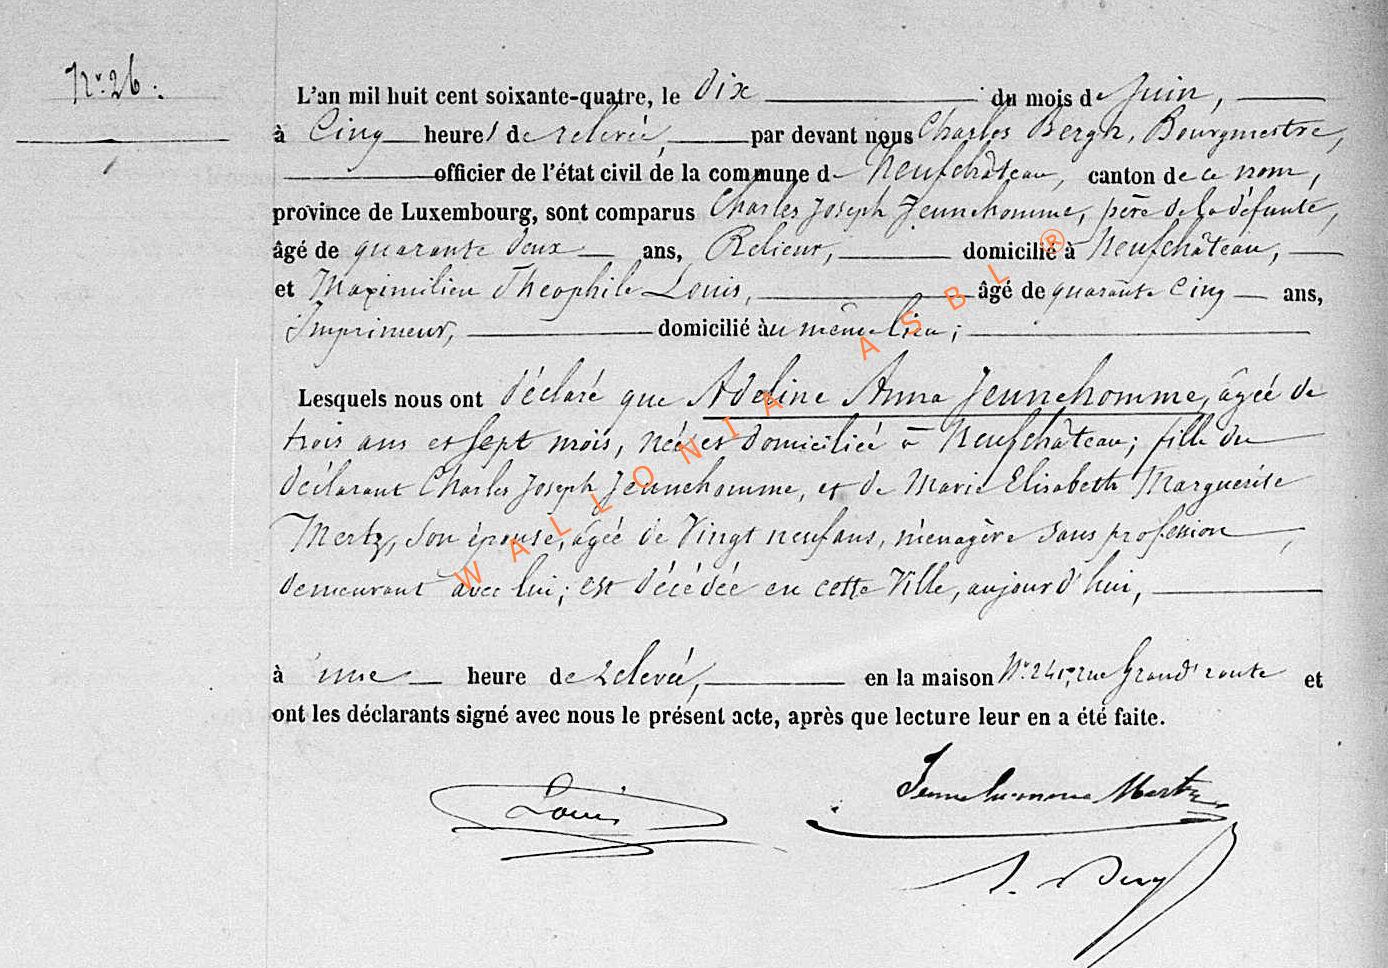 N.° 26.
L'an mil huit cent soixante-quatre, le dix du mois de Juin,
à Cinq heures de relevée, par devant nous Charles Bergh, Bourgmestre,
officier de l'état civil de la commune de Neufchâteau, canton de ce nom,
province de Luxembourg, sont comparus Charles Joseph Jeunehomme, père de la défunte,
âgé de quarante deux ans, Relieur, domicilié à Neufchâteau,
et Maximilien Théophile Louis, âgé de quarante cinq ans,
Imprimeur, domicilié au même lieu;
Lesquels nous ont déclaré que Adeline Anna Jeunehomme, âgée de
trois ans et sept mois, née et domiciliée à Neufchâteau; fille du
déclarant Charles Joseph Jeunehomme, et de Marie Elisabeth Marguerite
Mertz, son épouse, âgée de vingt neuf ans, ménagère sans profession,
demeurant avec lui; est décédée en cette Ville, aujourd'hui,
à une heure de relevée, en la maison N.° 241, rue Grand'route et
ont les déclarants signé avec nous le présent acte, après que lecture leur en a été faite.
Louis
Jeunehomme Mertz
WALLONIA ASBL ®